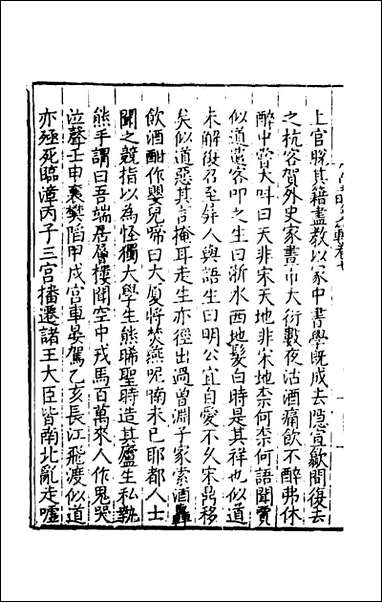 上官脫其籍盡教以家中書學既成去隱宣歙間復去
之杭客賀外史家書市大衍數夜沽酒痛飲不醉弗休
醉中嘗大呌曰天非宋天地非宋地柰何柰何語聞賈
似道遣客叩之生曰浙水西地髮白時是其祥也似道
未解復召至併人與語生曰明公宜自愛不久宋鼎移
矣似道惡其言掩耳走生亦徑出過曾淵子家索酒
飲酒酣作嬰兒啼曰大廈將焚燕呢喃未已耶都人士
聞之競指以為怪獨大學生熊晞聖時造其廬生私執
熊手謂曰吾端居層樓聞空中戎馬百萬來人作鬼哭
泣聲壬申襄樊陷甲戌宮車晏駕乙亥長江飛渡似道
亦殛死臨漳丙子三宮播遷諸王大臣皆南北亂走嘘